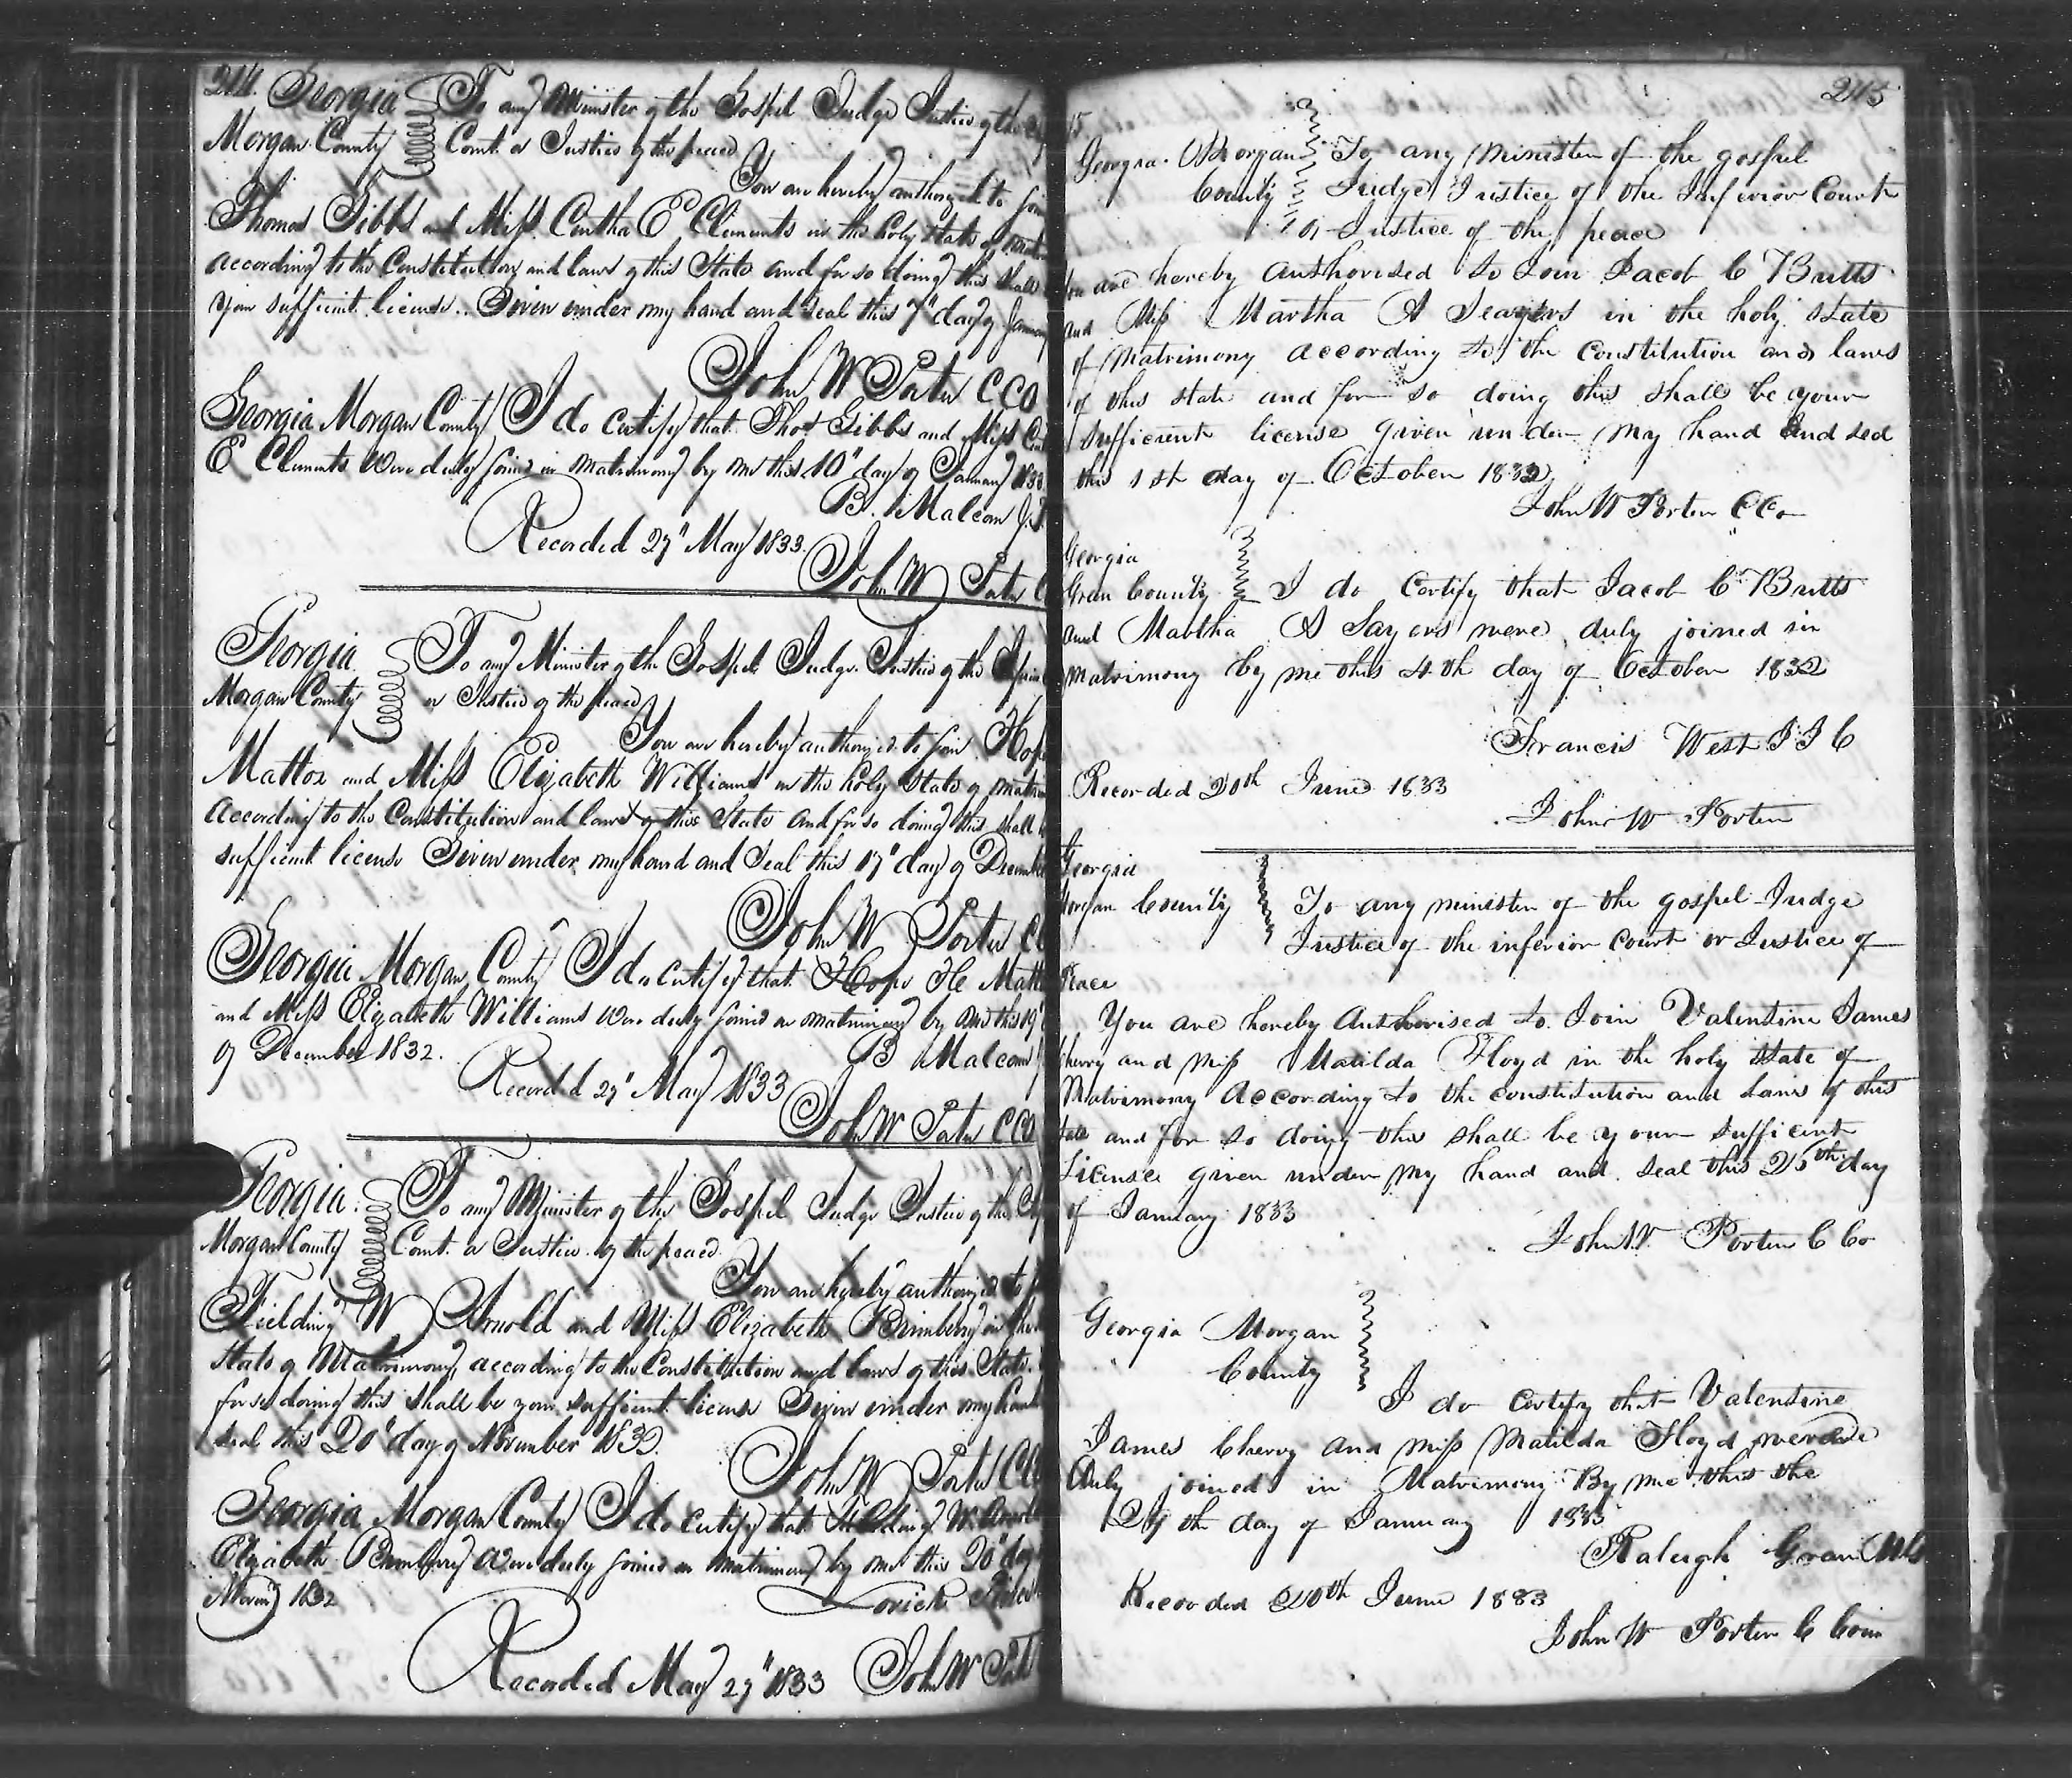 214.
Georgia To any Minister of the Gospel Judge Justice of the
Morgan County Court or Justice of the peace
You are hereby authorized to join
Thomas Gibbs and Miss Cintha E Clements in the holy state of
according to the Constitution and laws of this State and for so doing this shall
your sufficient license.. Given under my hand and Seal this 7" day of January
John W Porter CCO
Georgia Morgan County I do certify that Thos Gibbs and Miss
E Clements Were duly joined in matrimony by me this 10" day of January
B. Malcom
Recorded 27" May 1833.
John W Porter
Georgia To any Minister of the Gospel Judge Justice of the
Morgan County or Justice of the peace
You are hereby authorized to join
Mattox and Miss Elizabeth Williams in the holy state of
according to the Constitution and laws of this State and for so doing this shall
sufficient license Given under my hand and Seal this 17" day of
John W Porter
Georgia Morgan County I do certify that Hope H
and Miss Elizabeth Williams Were duly joined in matrimony by me this 19"
of December 1832.
B Malcom
Recorded 27" May 1833
John W Porter CCO
Georgia To any Minister of the Gospel Judge Justice of the
Morgan County Court or Justice of the peace
You are hereby authorized to
Fielding W Arnold and Miss Elizabeth Brimberry in the
State of Matrimony, according to the Constitution and laws of this State
for so doing this shall be your sufficient license Given under my hand
Seal this 20" day of November 1832.
John W Porter
Georgia Morgan County I do certify that Fielding W.
Elizabeth Brimberry Were duly joined in matrimony by me this 20" day
1832
Lovick
Recorded May 27" 1833 John W
215
Georgia. Morgan To any Minister of the gospel
County Judge Justice of the Inferior Court
or Justice of the peace
You are hereby authorised to Join Jacob C Butts
and Miss Martha A Seayers in the holy state
of Matrimony according to the Constitution and laws
of this state and for so doing this shall be your
Sufficient license given under my hand and seal
this 1st day of October 1832
John W Porter CCo
Georgia
Green County I do Certify that Jacob C Butts
and Martha A Sayers were duly joined in
Matrimony by me this 4th day of October 1832
Francis West J I C
Recorded 20th June 1833
John W Porter
Georgia
Morgan County To any minister of the gospel Judge
Justice of the inferior court or Justice of
Peace
You are hereby Authorised to Join Valentine James
Cherry and miss Matilda Floyd in the holy state of
Matrimony According to the constitution and laws of this
State and for so doing this shall be your sufficient
License given under my hand and seal this 25th day
of January 1833
John W Porter C Co
Georgia Morgan
County
I do Certify that Valentine
James Cherry and miss Matilda Floyd were
duly joined in Matrimony By me this the
27th day of January 1833
Raleigh
Recorded 20th June 1833
John W Porter C